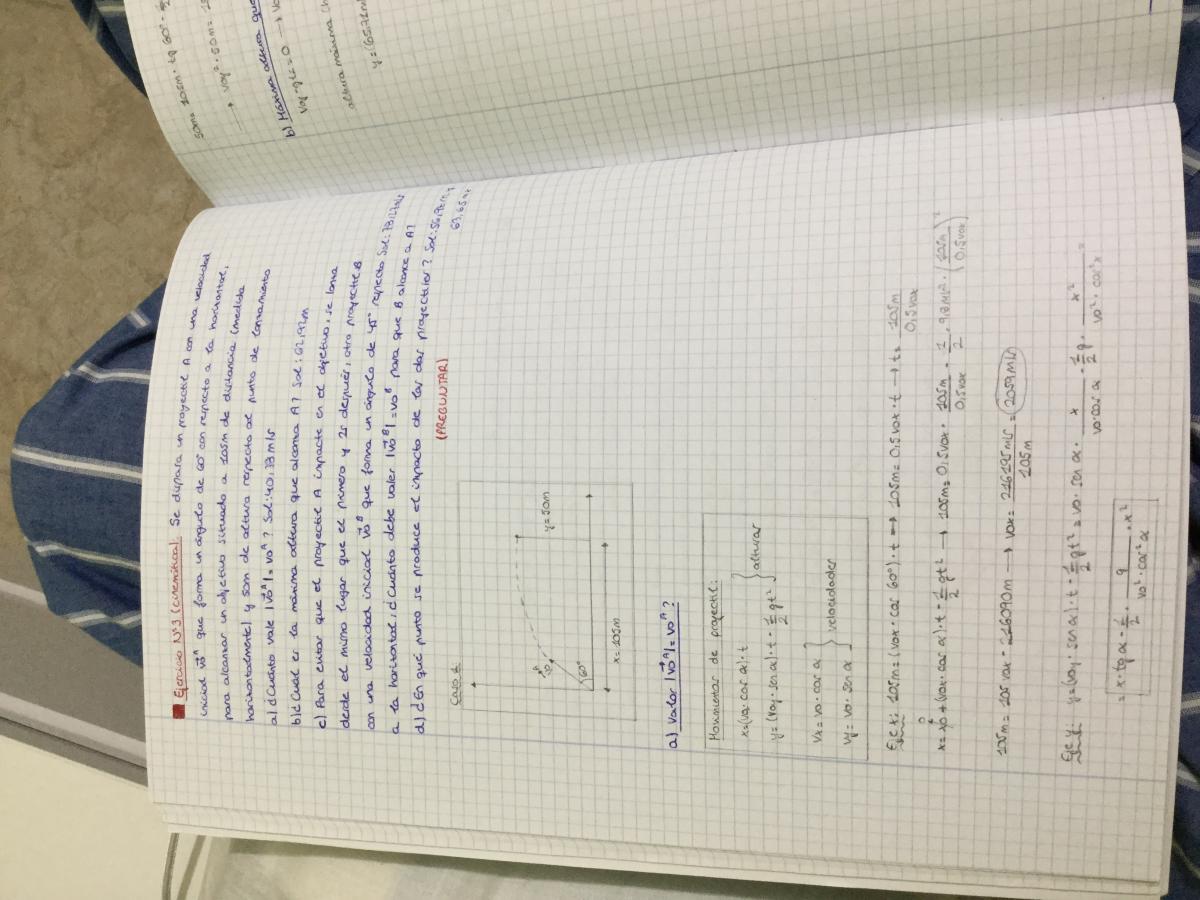 Ejercicio Nº3 (cinemática): Se dispara un proyectil A con una velocidad
inicial v0ᴬ que forma un ángulo de 60º con respecto a la horizontal,
para alcanzar un objetivo situado a 105m de distancia (medida
horizontalmente) y 50m de altura respecto al punto de lanzamiento
a) ¿Cuánto vale |v0ᴬ| = v0ᴬ? Sol: 40,73 m/s
b) ¿Cuál es la máxima altura que alcanza A? Sol: 62,92m
c) Para evitar que el proyectil A impacte en el objetivo, se lanza
desde el mismo lugar que el primero y 2s después, otro proyectil B
con una velocidad inicial v0ᴮ que forma un ángulo de 45º respecto
a la horizontal. ¿Cuánto debe valer |v0ᴮ| = v0ᴮ para que B alcance a A?
Sol: 73,27m/s
d) ¿En qué punto se produce el impacto de los dos proyectiles? Sol: 56,92m,
(PREGUNTAR)
Caso 1:
v0ᴬ
60º
y=50m
x=105m
a) Valor |v0ᴬ| = v0ᴬ?
Movimientos de proyectil:
x=(vo·cos α)·t
y=(voy·sen α)·t - 1/2 gt²
} alturas
Vx = vo·cos α
Vy = vo·sen α
} velocidades
Eje x: 105m=(vox·cos 60º)·t → 105m= 0,5vox·t → t= 105m/0,5vox
x= x0 + (vox·cos α)·t - 1/2 gt² → 105m= 0,5vox · 105m/0,5vox - 1/2 · 9,8m/s² · (105m/0,5vox)²
0
105m = 105vox - 216090m → vox= 216195m/s/105m = 2059m/s
Eje y: y=(voy·sen α)·t - 1/2 gt² = vo·sen α · x/vo·cos α - 1/2 g · x²/vo²·cos²α =
= x·tg α - 1/2 · g/vo²·cos²α · x²
50m= 105m·tg 60º -
→ voy²·50m=
b) Máxima altura que
Voy-gt=0 →
altura máxima